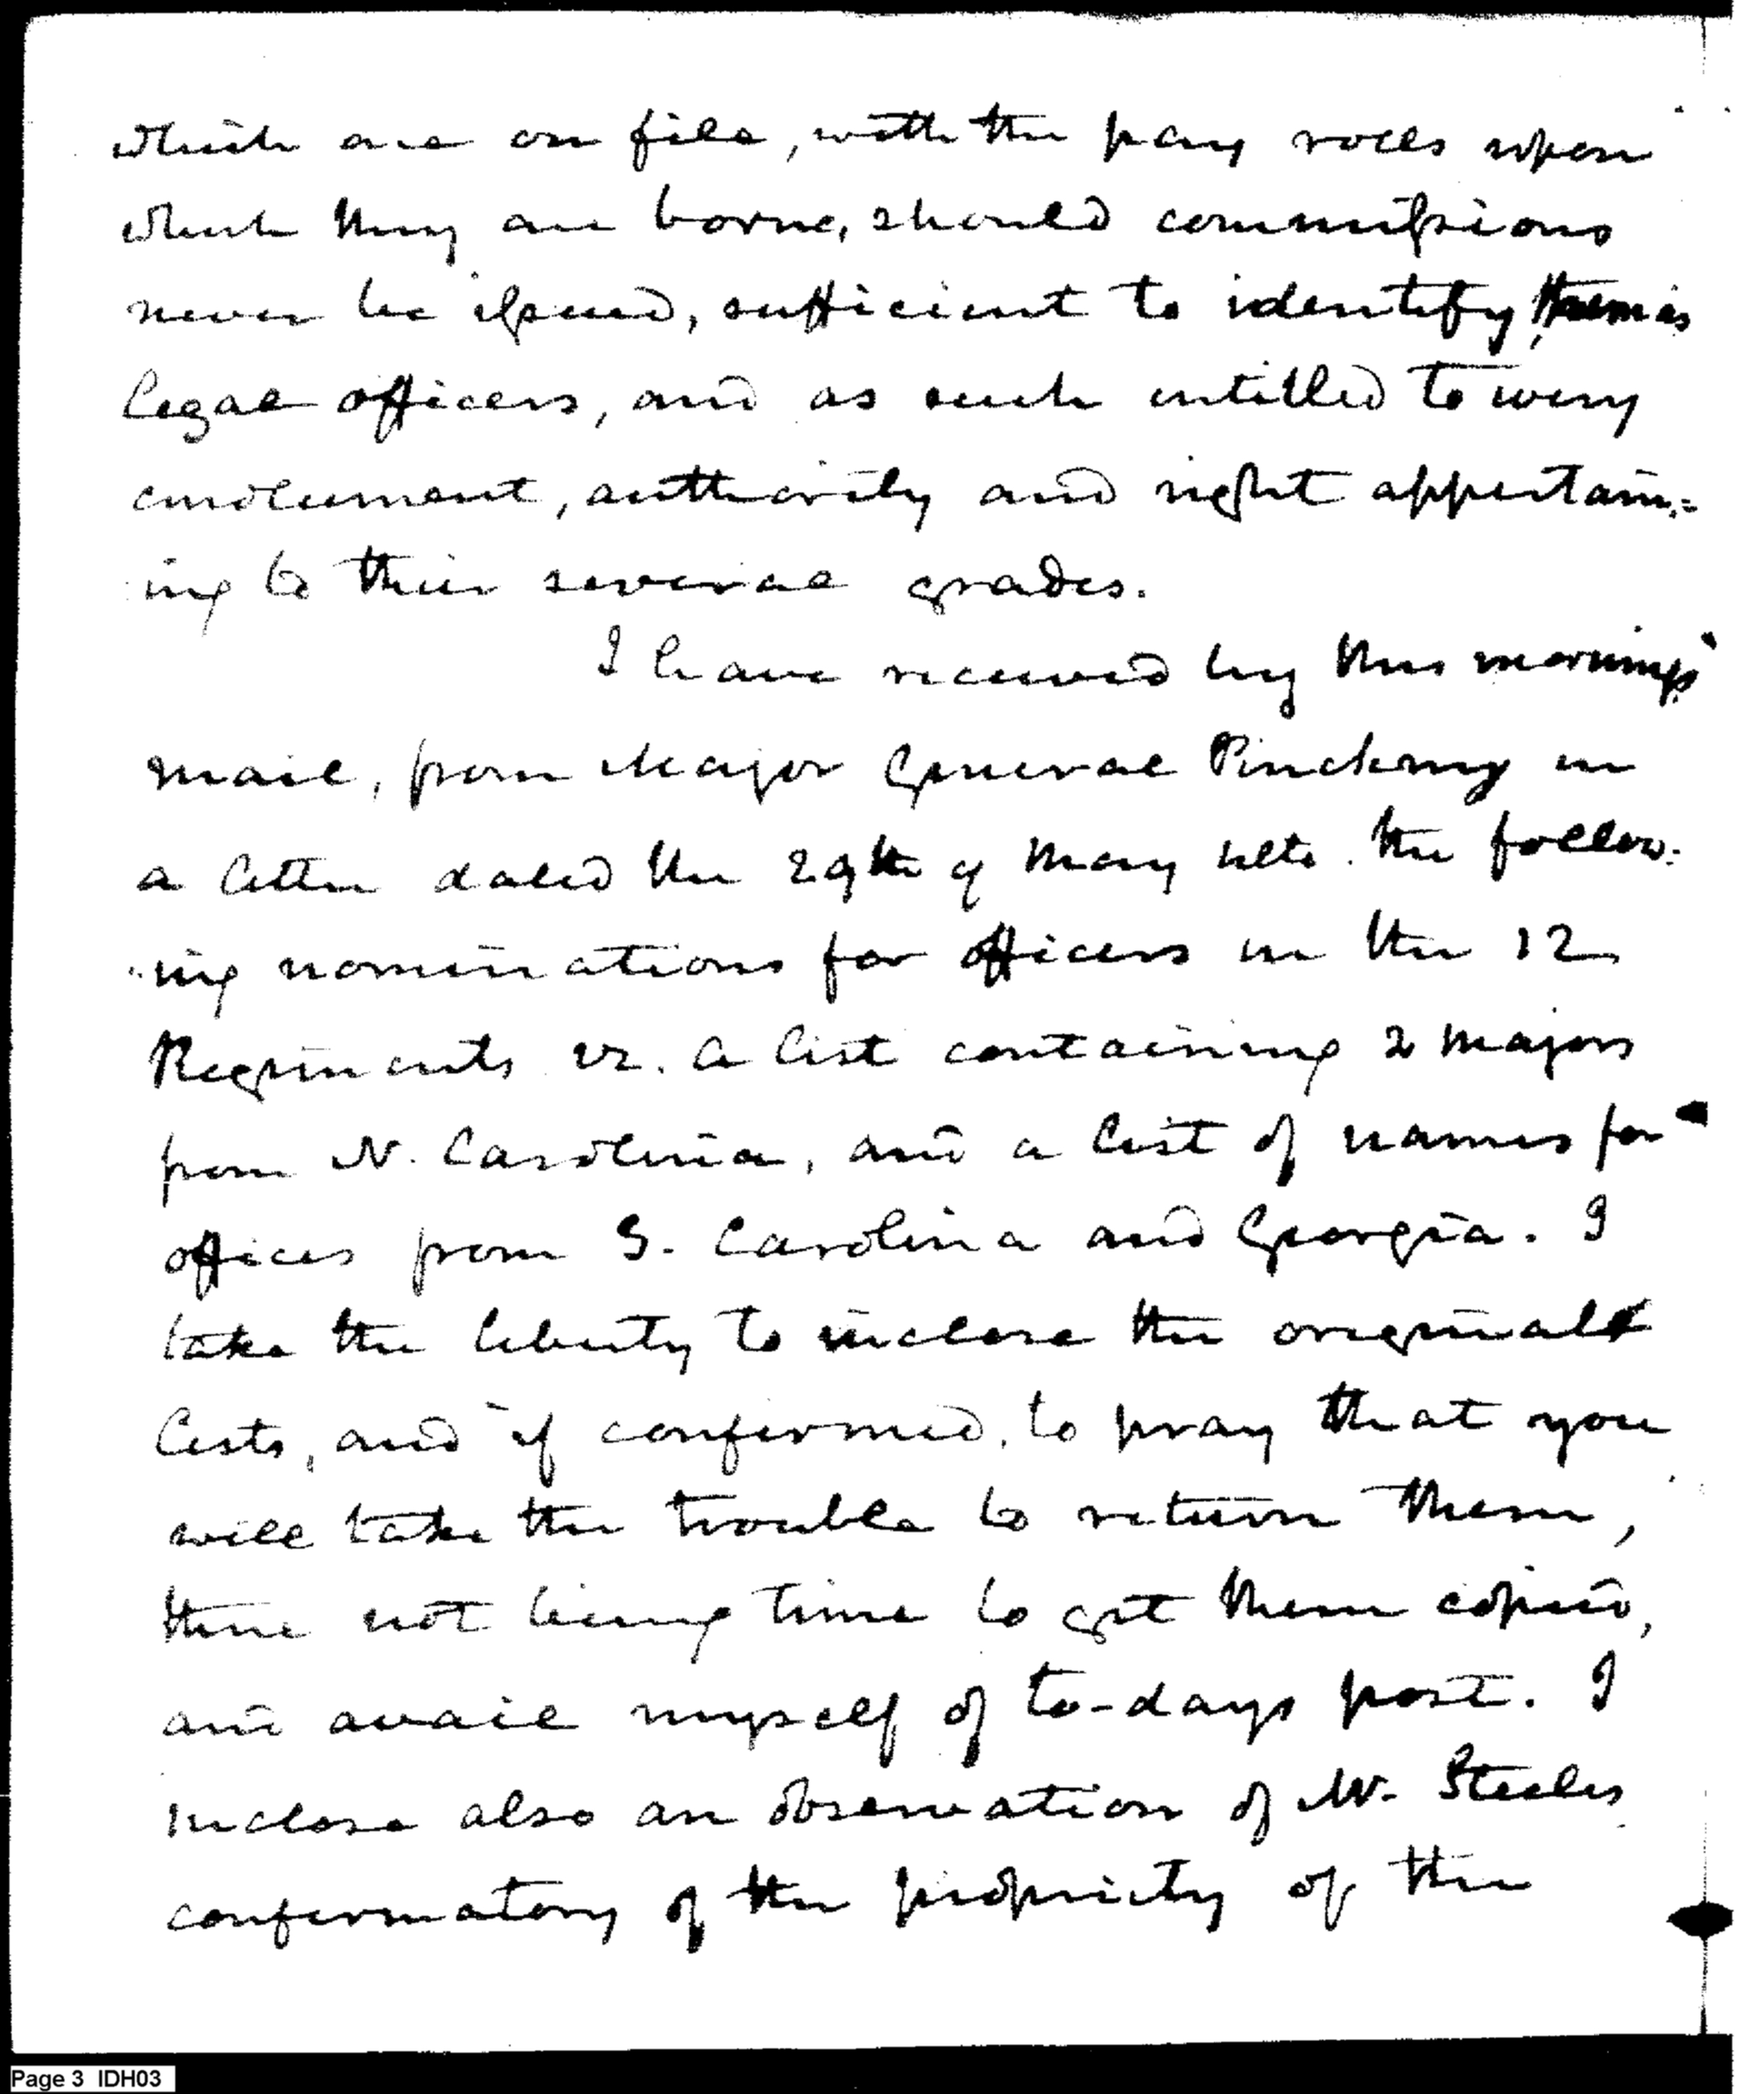 which are on file, with the pay rolls upon
which they are borne, should commissions
never be issued, sufficient to identify, them as
legal officers, and as such intitled to every
emolument, authority and right appertain=
ing to their several grades.
I have received by this mornings
mail, from Major General Pinckney in
a letter dated the 29th of May ulto. the follow-
ing nominations for officers in the 12
Regiments vz. a list containing 2 Majors
from N. Carolina, and a list of names for
offices from S. Carolina and Georgia. I
take the liberty to inclose the original
lists, and if confirmed, to pray that you
will take the trouble to return them,
there not being time to get them copied,
and avail myself of to-days post. I
inclose also an observation of Mr. Steeles
confirmatory of the propriety of the
Page 3 IDH03